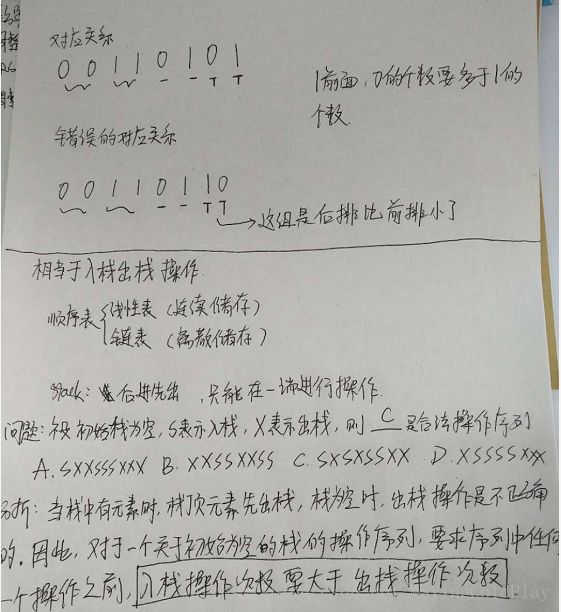 对应关系
0 0 1 1 0 1 0 1
1前面,0的个数要多于1的
个数
错误的对应关系
0 0 1 1 0 1 1 0
这组是后排比前排小了
相当于入栈出栈操作.
顺序表 线性表 (连续储存)
链表 (离散储存)
stack: 后进先出 , 只能在一端进行操作.
问题: 设初始栈为空, S表示入栈, X表示出栈, 则 C 是合法操作序列
A. SXXSSXXX B. XXSSXXSS C. SXSXSSXX D. XSSSSXXX
析: 当栈中有元素时, 栈顶元素先出栈, 栈为空时, 出栈操作是不正确
的. 因此, 对于一个关于初始为空的栈的操作序列, 要求序列中任何
一个操作之前, 入栈操作次数要大于出栈操作次数